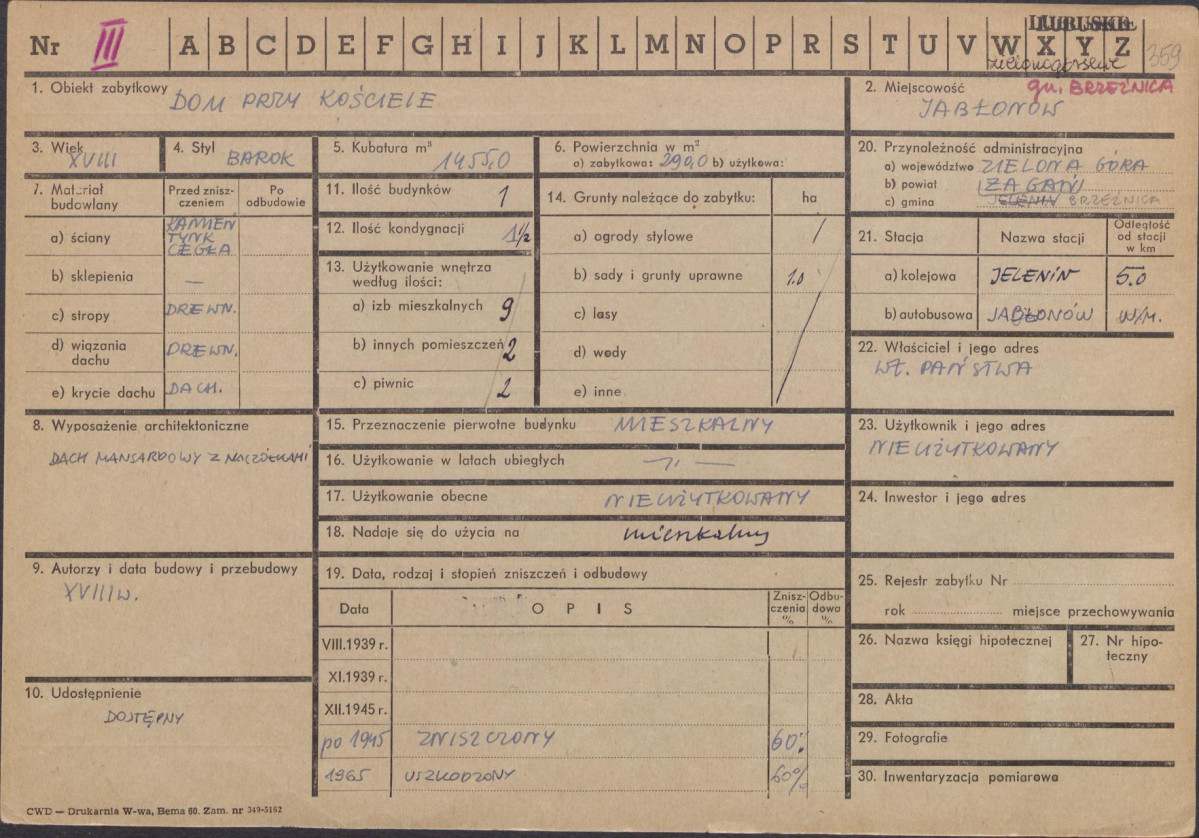 Nr III A B C D E F G H I J K L M N O P R S T U V W X Y Z
LUBUSKIE
zielonogórskie
359
1. Obiekt zabytkowy DOM PRZY KOŚCIELE
2. Miejscowość gm. BRZEŹNICA
JABŁONÓW
3. Wiek XVIII
4. Styl BAROK
5. Kubatura m³ 1455,0
6. Powierzchnia w m²
a) zabytkowa: 290,0 b) użytkowa:
20. Przynależność administracyjna
a) województwo ZIELONA GÓRA
b) powiat ŻAGAŃ
c) gmina JELENIN BRZEŹNICA
7. Materiał budowlany
Przed zniszczeniem
Po odbudowie
a) ściany KAMIEŃ
TYNK
CEGŁA
b) sklepienia —
c) stropy DREWN.
d) wiązania dachu DREWN.
e) krycie dachu DACH.
11. Ilość budynków 1
12. Ilość kondygnacji 1½
13. Użytkowanie wnętrza
według ilości:
a) izb mieszkalnych 9
b) innych pomieszczeń 2
c) piwnic 2
14. Grunty należące do zabytku: ha
a) ogrody stylowe /
b) sady i grunty uprawne 1.0
c) lasy
d) wody
e) inne
21. Stacja
Nazwa stacji
Odległość
od stacji
w km
a) kolejowa JELENIN 5.0
b) autobusowa JABŁONÓW W/M.
22. Właściciel i jego adres
WŁ. PAŃSTWA
8. Wyposażenie architektoniczne
DACH MANSARDOWY Z NACZÓŁKAMI
15. Przeznaczenie pierwotne budynku MIESZKALNY
16. Użytkowanie w latach ubiegłych —„—
17. Użytkowanie obecne NIEUŻYTKOWANY
18. Nadaje się do użycia na mieszkalny
23. Użytkownik i jego adres
NIEUŻYTKOWANY
24. Inwestor i jego adres
9. Autorzy i data budowy i przebudowy
XVIII w.
19. Data, rodzaj i stopień zniszczeń i odbudowy
Data
O P I S
Zniszczenia %
Odbudowa %
VIII.1939 r.
XI.1939 r.
XII.1945 r.
po 1945 ZNISZCZONY 60%
1965 USZKODZONY 60%
25. Rejestr zabytku Nr
rok miejsce przechowywania
26. Nazwa księgi hipotecznej
27. Nr hipoteczny
10. Udostępnienie
DOSTĘPNY
28. Akta
29. Fotografie
30. Inwentaryzacja pomiarowa
CWD — Drukarnia W-wa, Bema 60. Zam. nr 349-5162